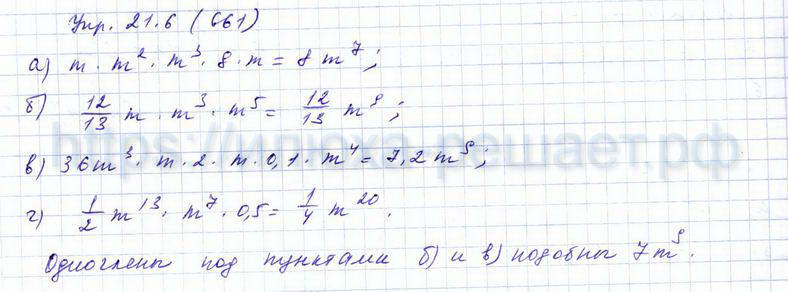 Упр. 21.6 (661)
а) m · m² · m³ · 8 · m = 8 m⁷;
б) 12/13 m · m³ · m⁵ = 12/13 m⁹;
в) 36m³ · m · 2 · m · 0,1 · m⁴ = 7,2 m⁹;
г) 1/2 m¹³ · m⁷ · 0,5 = 1/4 m²⁰.
Одночлены под пунктами б) и в) подобны 7m⁹.
https://илюха-решает.рф